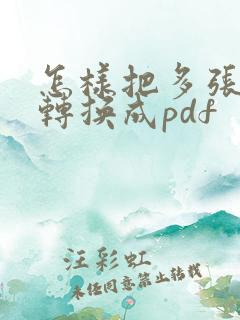 怎樣把多張
轉換成pdf
汪彩虹
未任同意禁止转载